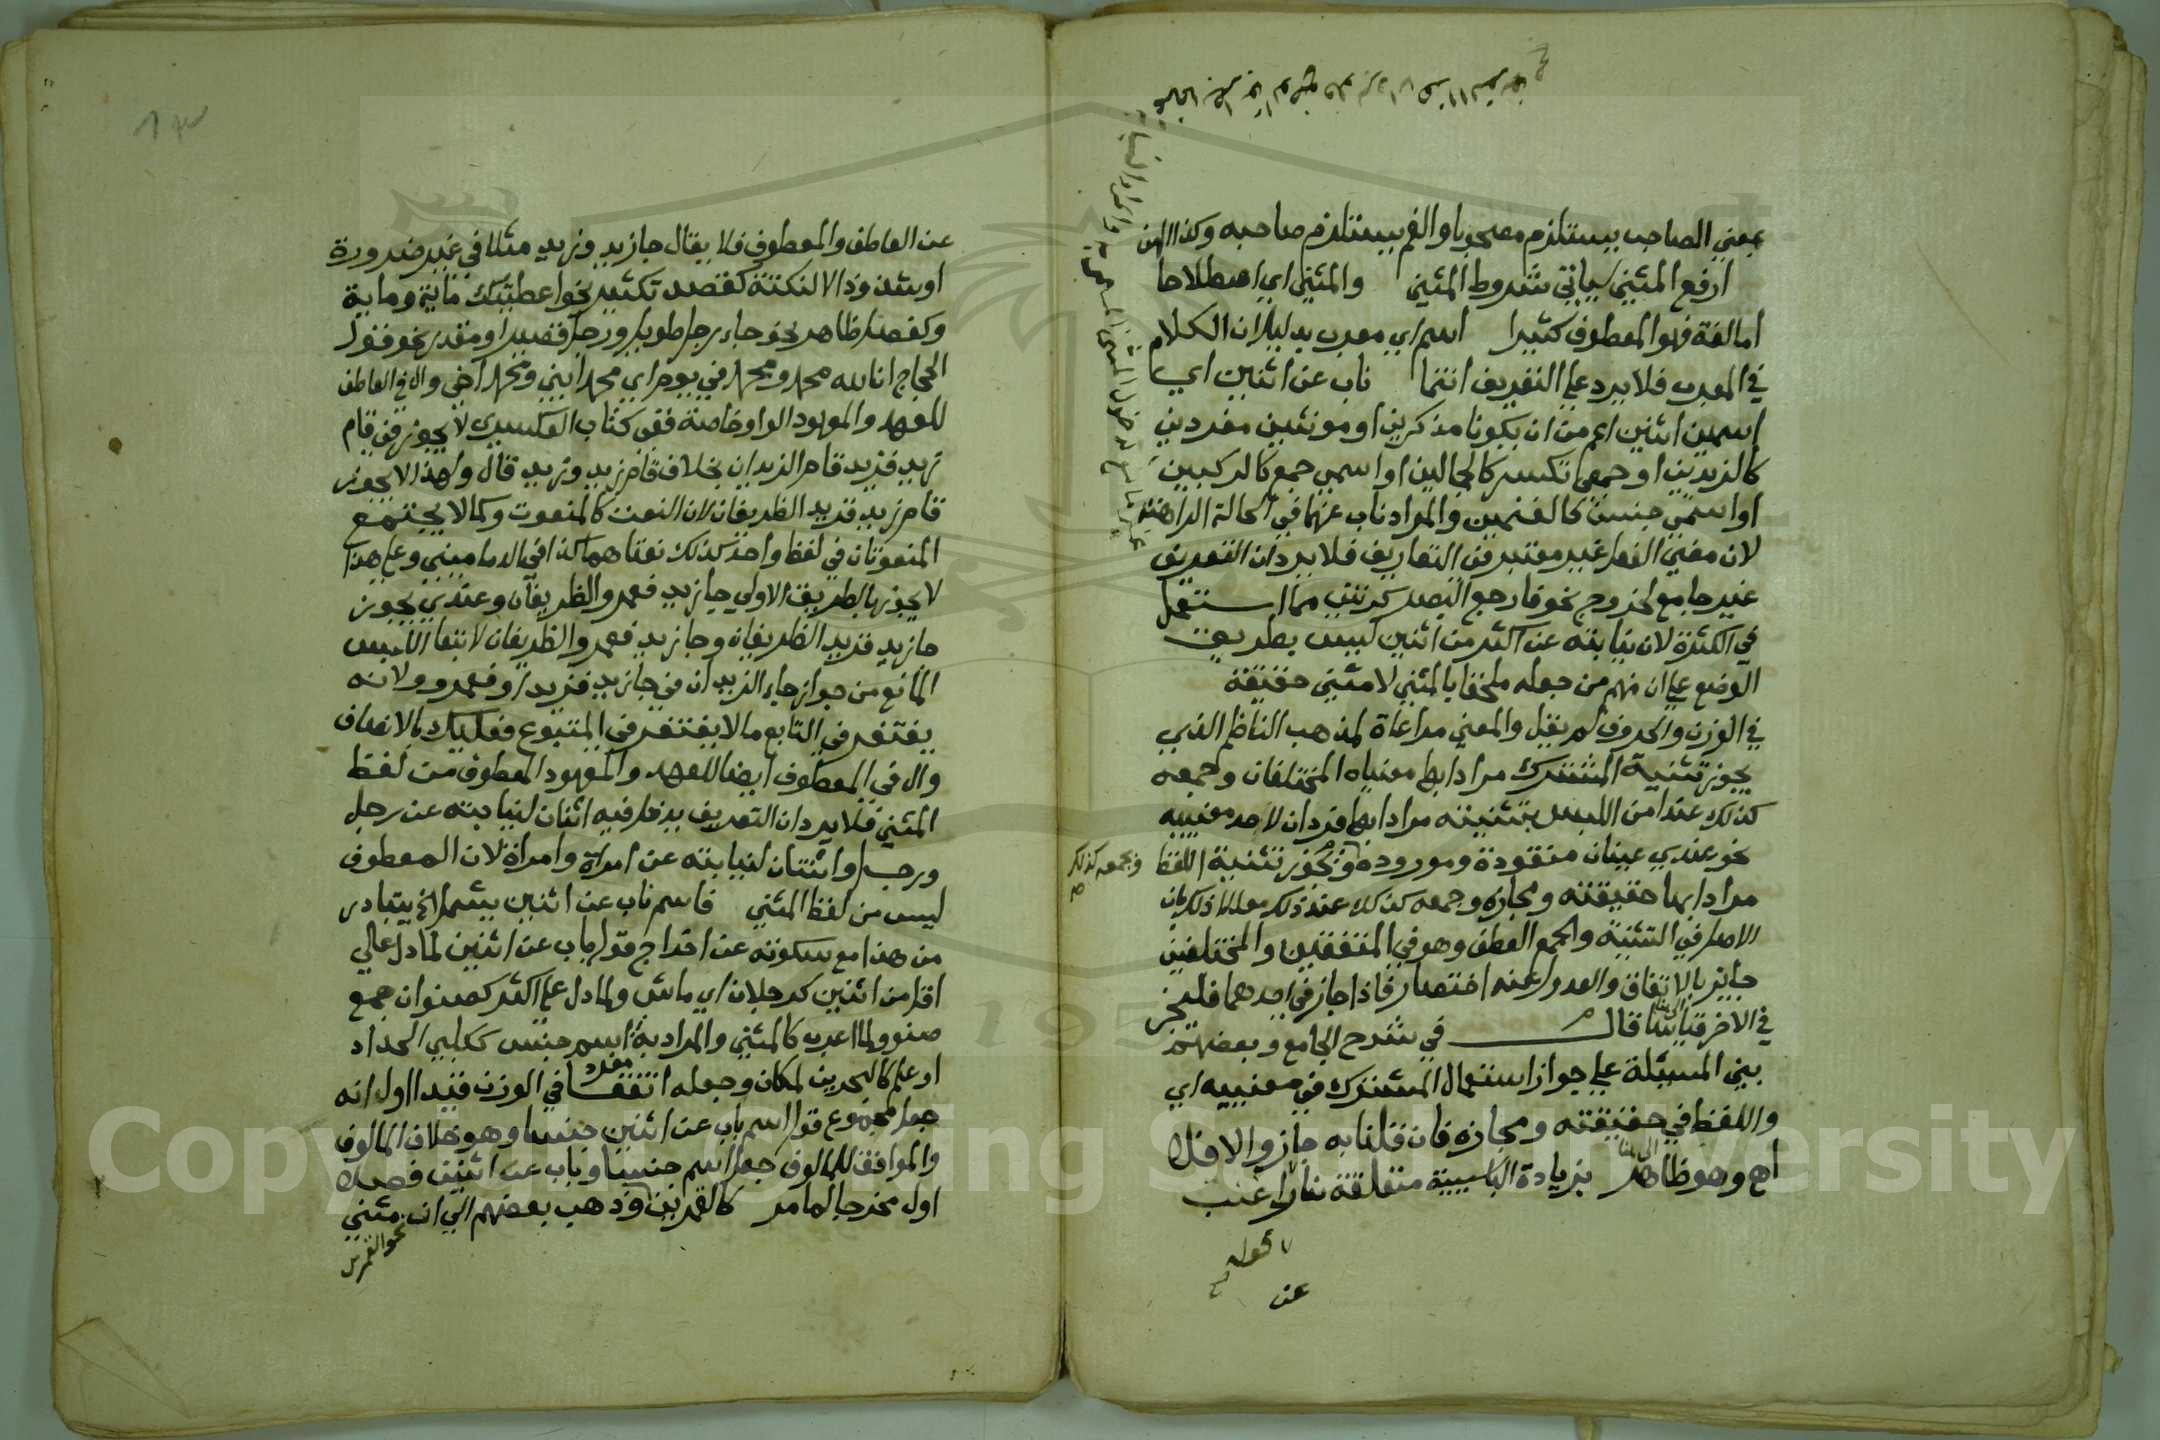 بمعني الصاحب يستلزم مصحوبا والفم يستلزم صاحبه وكذا الهن
ارفع المثني سياتي شروط المثني والمثني اي اصطلاحا
اما لغة فهو المعطوف كثيرا اسم اي معرب بدليل ان الكلام
في المعرب فلا يرد علي التعريف انتما ناب عن اثنين اي
اسمين اثنين اعم من ان يكونا مذكرين او مونثين مفردين
كالزيدين او جمعي تكسير كالجمالين او اسمي جمع كالركبين
او اسمي جنس كالغنمين والمراد ناب عنهما في الحالة الراهنة
لان مضي الفعل غير معتبر في التعاريف فلا يرد ان التعريف
غير جامع لخروج نحو فارجع البصر كرتين مما استعمل
في الكثرة لان نيابته عن اكثر من اثنين ليس بطريق
الوضع علي ان منهم من جعله ملحقا بالمثني لا مثني حقيقة
في الوزن والحروف لم يقل والمعني مراعاة لمذهب الناظم الذي
يجوز تثنية المشترك مرادا بها معنياه المختلفان وجمعه
كذلك عند امن اللبس بتثنيته مرادا بها فردان لاحد معنييه
نحو عندي عينان منقودة ومورودة ويجوز تثنية اللفظ
وبجمعه كذلك
مرادا بها حقيقته ومجازه وجمعه كذلك عند ذلك معللا ذلك بان
الاصل في التثنية والجمع العطف وهو في المتفقين والمختلفين
جايز بالاتفاق والعدول عنه اختصار فاذا جاز في احدهما فليجز
في الاخر قياسا قال في شرح الجامع وبعضهم
بني المسئلة علي جواز استعمال المشترك في معنييه اي
واللفظ في حقيقته ومجازه فان قلنا به جاز والا فلا
اهـ وهو ظاهر بزيادة الباسببية متعلقة بناب اغنت
قوله
عن
عن العاطف والمعطوف فلا يقال جا زيد وزيد مثلا في غير ضرورة
او شذوذ الا لنكتة كقصد تكثير نحو اعطيتك ماية وماية
وكفصل ظاهر نحو جاء رجل طويل ورجل قصير او مقدر نحو قول
الحجاج انا لله محمد ومحمد في يوم اي محمد ابني ومحمد اخي وال في العاطف
للعهد والمعهود الواو خاصة ففي كتاب العسكري لا يجوز في قام
زيد فزيد قام الزيدان بخلاف قام زيد وزيد قال ولهذا لا يجوز
قام زيد فزيد الظريفان لان النعت كالمنعوت وكما لا يجتمع
المنعوتان في لفظ واحد كذلك نعتاهما كذا في الدماميني وعلي هذا
لا يجوز بالطريق الاولي جا زيد فعمرو الظريفان وعندي يجوز
جا زيد فزيد الظريفان وجا زيد فعمرو الظريفان لانتفا اللبس
المانع من جواز جاء الزيدان في جا زيد فزيد او فعمرو ولانه
يغتفر في التابع ما لا يغتفر في المتبوع فعليك بالانصاف
وال في المعطوف ايضا للعهد والمعهود المعطوف من لفظ
المثني فلا يرد ان التعريف يدخل فيه اثنان لنيابته عن رجل
ورجل واثنتان لنيابته عن امراة وامراة لان المعطوف
ليس من لفظ المثني فاسم ناب عن اثنين يشمل الخ يتبادر
من هذا مع سكوته عن اخراج قوله ناب عن اثنين لما دل علي
اقل من اثنين كرجلان اي ماش ولما دل علي اكثر كصنوان جمع
صنو ولما اعرب كالمثني والمراد به اسم جنس ككلبي الحداد
او علم كالبحرين لمكان وجعله اتفقا في الوزن قيدا اول انه
جعل مجموع قوله اسم ناب عن اثنين جنسا وهو خلاف المالوف
والموافق للمالوف جعل اسم جنسا وناب عن اثنين فصلا
اول مخرجا لما مر كالقمرين وذهب بعضهم الي ان مثني
نحو القمرين